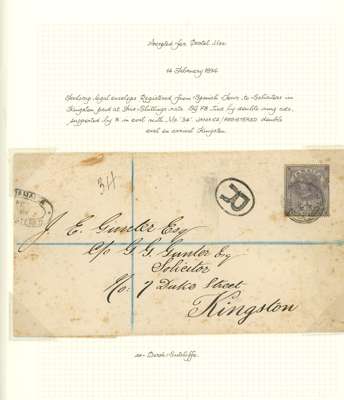 Accepted for Postal Use
14 February 1894
legal envelope Registered from Spanish Town to Solicitors in
Kingston paid at Two Shillings rate by F8 tied by double ring cds,
supported by R in oval with No '34'. JAMAICA/REGISTERED double
oval on arrival Kingston
JAMAICA
34
R
J. E. Gunter Esq
c/o G. G. Gunter Esq
Solicitor
No. 7 Duke Street
Kingston